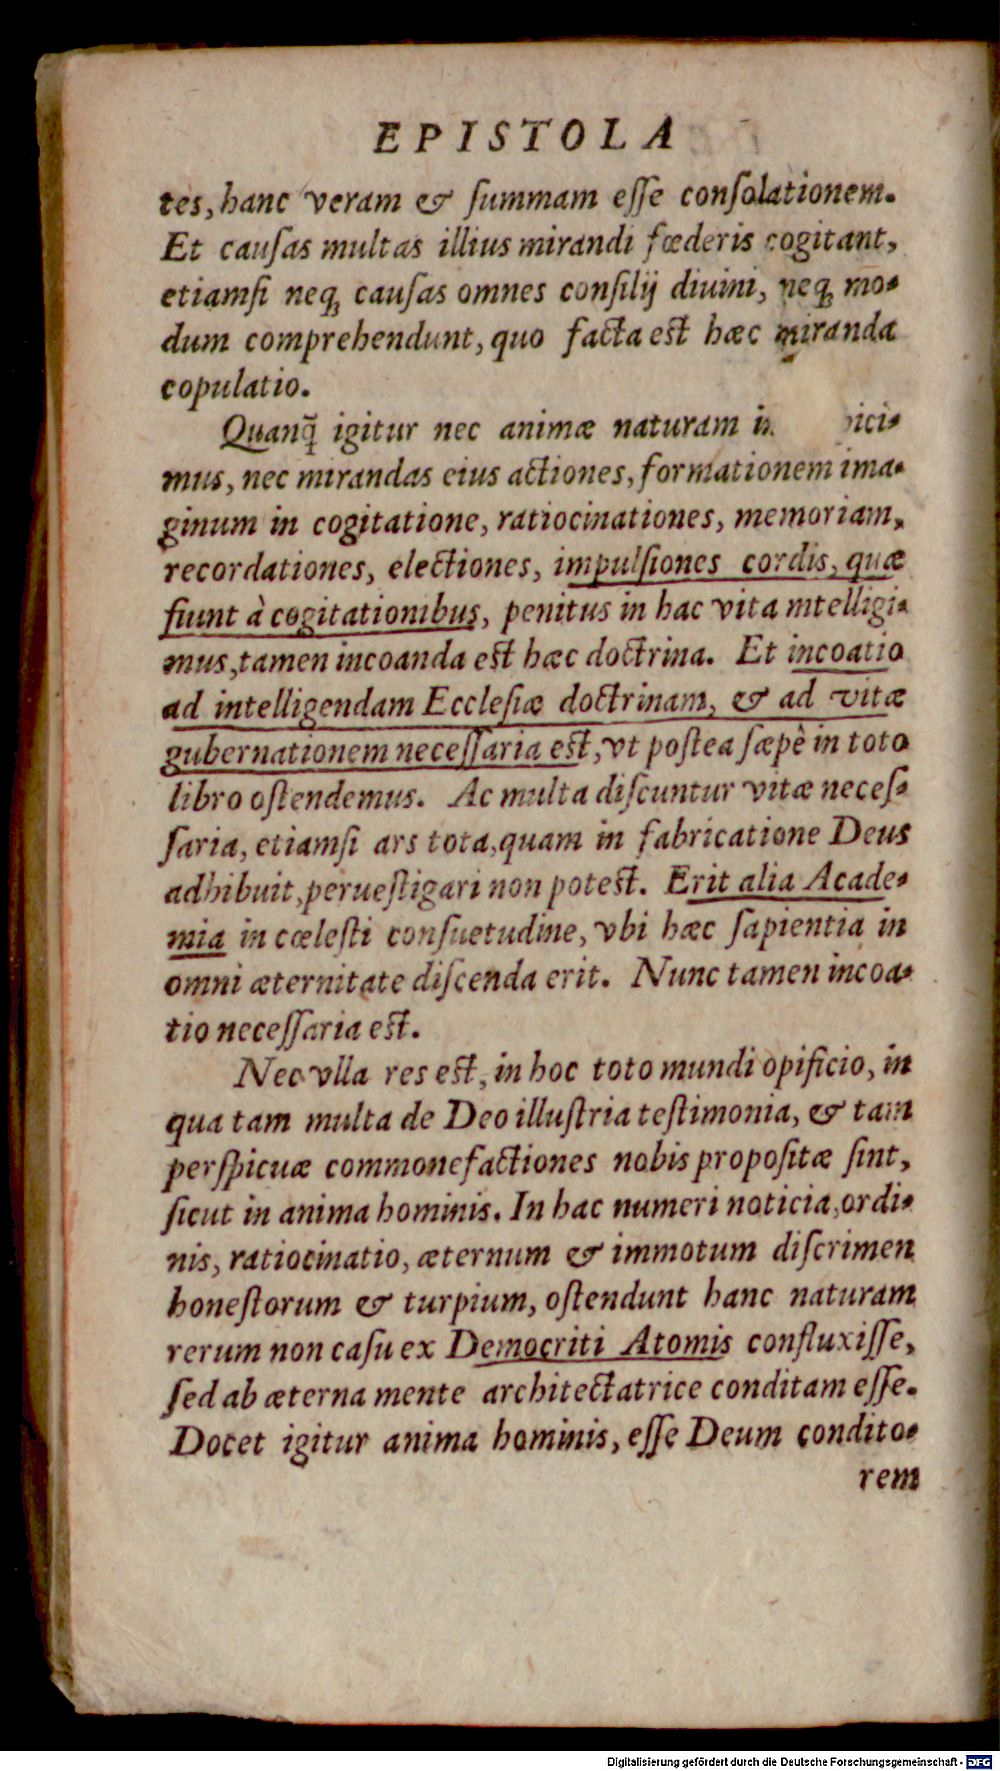 EPISTOLA
tes, hanc veram & ſummam eſſe conſolationem.
Et cauſas multas illius mirandi fœderis cogitant,
etiamſi neq; cauſas omnes conſilij diuini, neq; mo-
dum comprehendunt, quo facta est hæc miranda
copulatio.
Quanq̃ igitur nec animæ naturam
mus, nec mirandas eius actiones, formationem ima-
ginum in cogitatione, ratiocinationes, memoriam,
recordationes, electiones, impulſiones cordis, quæ
fiunt à cogitationibus, penitus in hac vita intelligi-
mus, tamen incoanda est hæc doctrina. Et incoatio
ad intelligendam Eccleſiæ doctrinam, & ad vitæ
gubernationem neceſſaria est, vt poſtea ſæpè in toto
libro oſtendemus. Ac multa diſcuntur vitæ neceſ-
ſaria, etiamſi ars tota, quam in fabricatione Deus
adhibuit, perueſtigari non potest. Erit alia Acade-
mia in cœleſti conſuetudine, vbi hæc ſapientia in
omni æternitate diſcenda erit. Nunc tamen incoa-
tio neceſſaria est.
Nec vlla res est, in hoc toto mundi opificio, in
qua tam multa de Deo illuſtria teſtimonia, & tam
perſpicuæ commonefactiones nobis propoſitæ ſint,
ſicut in anima hominis. In hac numeri noticia, ordi-
nis, ratiocinatio, æternum & immotum diſcrimen
honeſtorum & turpium, oſtendunt hanc naturam
rerum non caſu ex Democriti Atomis confluxiſſe,
ſed ab æterna mente architectatrice conditam eſſe.
Docet igitur anima hominis, eſſe Deum condito-
rem
Digitalisierung gefördert durch die Deutsche Forschungsgemeinschaft - DFG